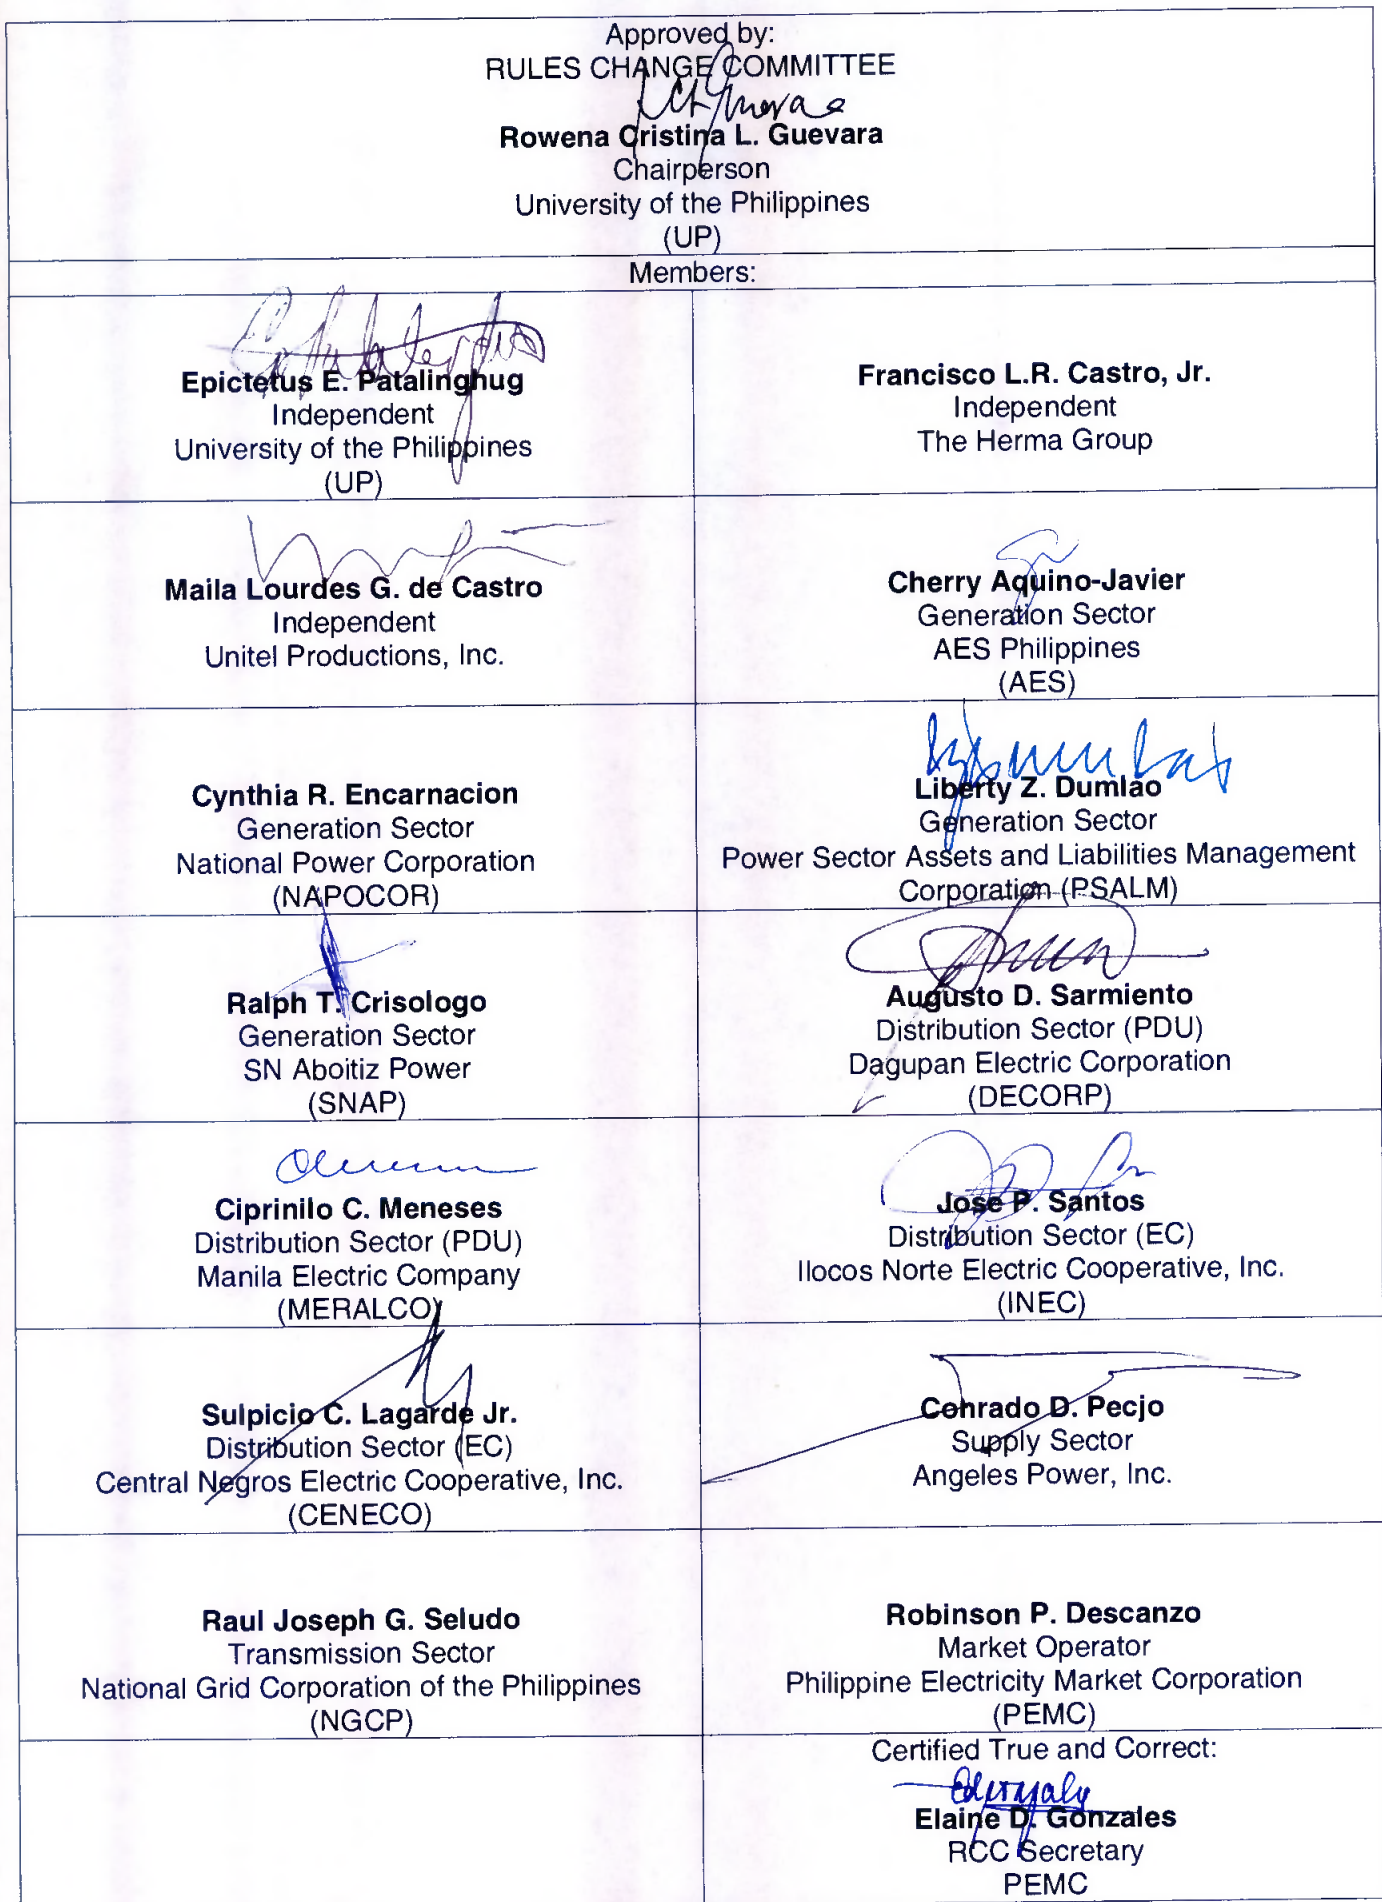 Approved by:
RULES CHANGE COMMITTEE
Rowena Cristina L. Guevara
Chairperson
University of the Philippines
(UP)
Members:
Epictetus E. Patalinghug
Independent
University of the Philippines
(UP)
Francisco L.R. Castro, Jr.
Independent
The Herma Group
Maila Lourdes G. de Castro
Independent
Unitel Productions, Inc.
Cherry Aquino-Javier
Generation Sector
AES Philippines
(AES)
Cynthia R. Encarnacion
Generation Sector
National Power Corporation
(NAPOCOR)
Liberty Z. Dumlao
Generation Sector
Power Sector Assets and Liabilities Management
Corporation (PSALM)
Ralph T. Crisologo
Generation Sector
SN Aboitiz Power
(SNAP)
Augusto D. Sarmiento
Distribution Sector (PDU)
Dagupan Electric Corporation
(DECORP)
Ciprinilo C. Meneses
Distribution Sector (PDU)
Manila Electric Company
(MERALCO)
Jose P. Santos
Distribution Sector (EC)
Ilocos Norte Electric Cooperative, Inc.
(INEC)
Sulpicio C. Lagarde Jr.
Distribution Sector (EC)
Central Negros Electric Cooperative, Inc.
(CENECO)
Conrado D. Pecjo
Supply Sector
Angeles Power, Inc.
Raul Joseph G. Seludo
Transmission Sector
National Grid Corporation of the Philippines
(NGCP)
Robinson P. Descanzo
Market Operator
Philippine Electricity Market Corporation
(PEMC)
Certified True and Correct:
Elaine D. Gonzales
RCC Secretary
PEMC